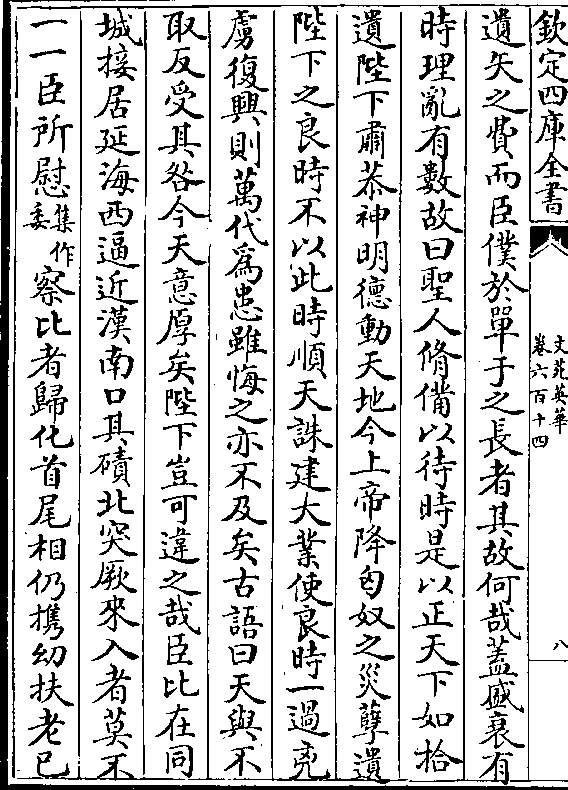 欽定四庫全書
文苑英華
卷六百十四
八
遺矢之費而臣僕於單于之長者其故何哉蓋盛衰有
時理亂有數故曰聖人脩備以待時是以正天下如拾
遺陛下肅恭神明德動天地今上帝降匈奴之災孽遺
陛下之良時不以此時順天誅建大業使良時一過兇
虜復興則萬代為患雖悔之亦不及矣古語曰天與不
取反受其咎今天意厚矣陛下豈可違之哉臣比在同
城接居延海西逼近漠南口其磧北突厥來入者莫不
一一臣所慰集作委察比者歸化首尾相仍擕幼扶老已